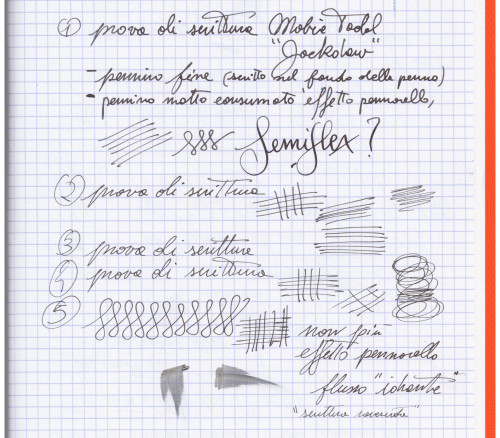 ① prova di scrittura Mabie Todd
"Jackdaw"
- pennino fine (scritto nel fondo della penna)
- pennino molto consumato effetto pennarello,
Semiflex?
② prova di scrittura
③ prova di scrittura
④ prova di scrittura
⑤
non più
effetto pennarello
flusso "idrante"
"scrittura rovesciata"